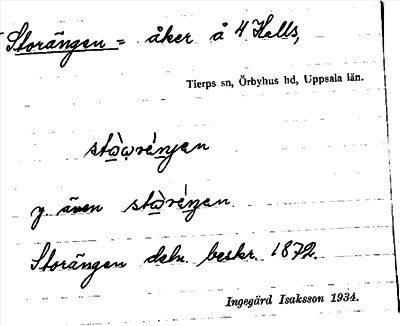 Storängen = åker å 4 Halls,
Tierps sn, Örbyhus hd, Uppsala län.
även
Storängen deln. beskr. 1872.
Ingegärd Isaksson 1934.